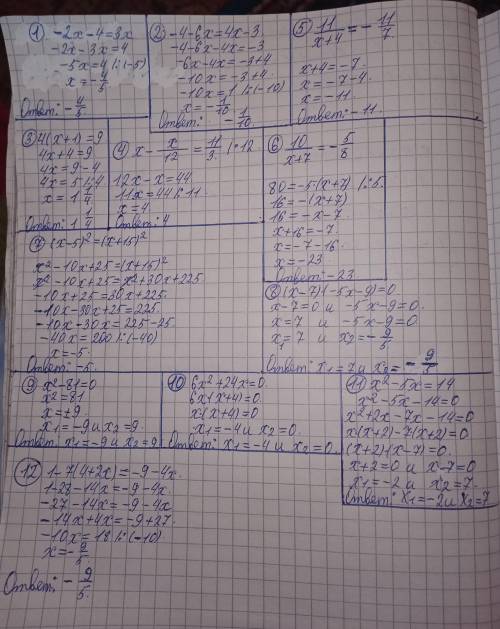 ① -2x-4=3x
-2x-3x=4
-5x=4 |:(-5)
x=-4/5
Ответ: -4/5.
② -4-6x=4x-3
-4-6x-4x=-3
-6x-4x=-3+4
-10x=-3+4
-10x=1 |:(-10)
x=-1/10
Ответ: -1/10.
⑤ 11/x+4=-11/7
x+4=-7
x=-7-4
x=-11
Ответ: -11.
③ 4(x+1)=9
4x+4=9
4x=9-4
4x=5 |:4
x=1 1/4
Ответ: 1 1/4
④ x-x/12=11/3 |·12
12x-x=44
11x=44 |:11
x=4
Ответ: 4
⑥ 10/x+7=-5/8
80=-5(x+7) |:5.
16=-(x+7)
16=-x-7
x+16=-7
x=-7-16.
x=-23
Ответ: -23.
⑦ (x-5)²=(x+15)²
x²-10x+25=(x+15)²
x²-10x+25=x²+30x+225.
-10x+25=30x+225.
-10x-30x+25=225.
-10x-30x=225-25.
-40x=200 |:(-40)
x=-5.
Ответ: -5.
⑧ (x-7)(-5x-9)=0
x-7=0 и -5x-9=0.
x=7 и -5x-9=0
x₁=7 и x₂=-9/5
Ответ: x₁=7 и x₂=-9/5
⑨ x²-81=0
x²=81
x=±9.
x₁=-9 и x₂=9.
Ответ: x₁=-9 и x₂=9
10 6x²+24x=0.
6x(x+4)=0
x(x+4)=0
x₁=-4 и x₂=0.
Ответ: x₁=-4 и x₂=0.
⑪ x²-5x=14
x²-5x-14=0
x²+2x-7x-14=0
x(x+2)-7(x+2)=0
(x+2)(x-7)=0.
x+2=0 и x-7=0
x₁=-2 и x₂=7.
Ответ: x₁=-2 и x₂=7
⑫ 1-7(4+2x)=-9-4x.
1-28-14x=-9-4x.
-27-14x=-9-4x
-14x+4x=-9+27.
-10x=18 |:(-10)
x=-9/5
Ответ: -9/5.